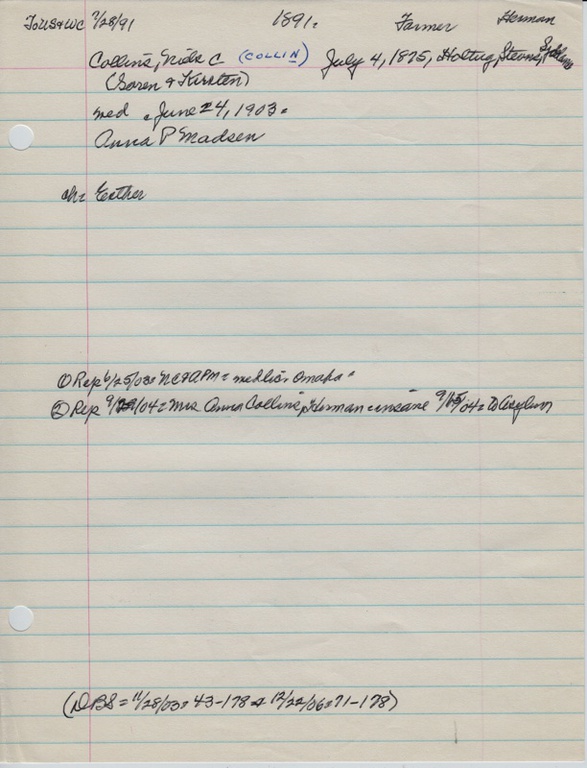 To US & WC 7/28/91 1891. Farmer Herman
Collins, Niels C (COLLIN) July 4, 1875, Holtug, Stevns, Sjælland
(Soren & Kirsten)
med June 24, 1903.
Anna P Madsen
ch = Esther
① Rep 6/25/03 = NC & APM = med lic. Omaha =
② Rep 9/ /04 = Mrs Anna Collins, Herman = insane 9/15/04 = to asylum
(DBS = 11/28/03 = 43-178 & 12/22/06 = 71-178)